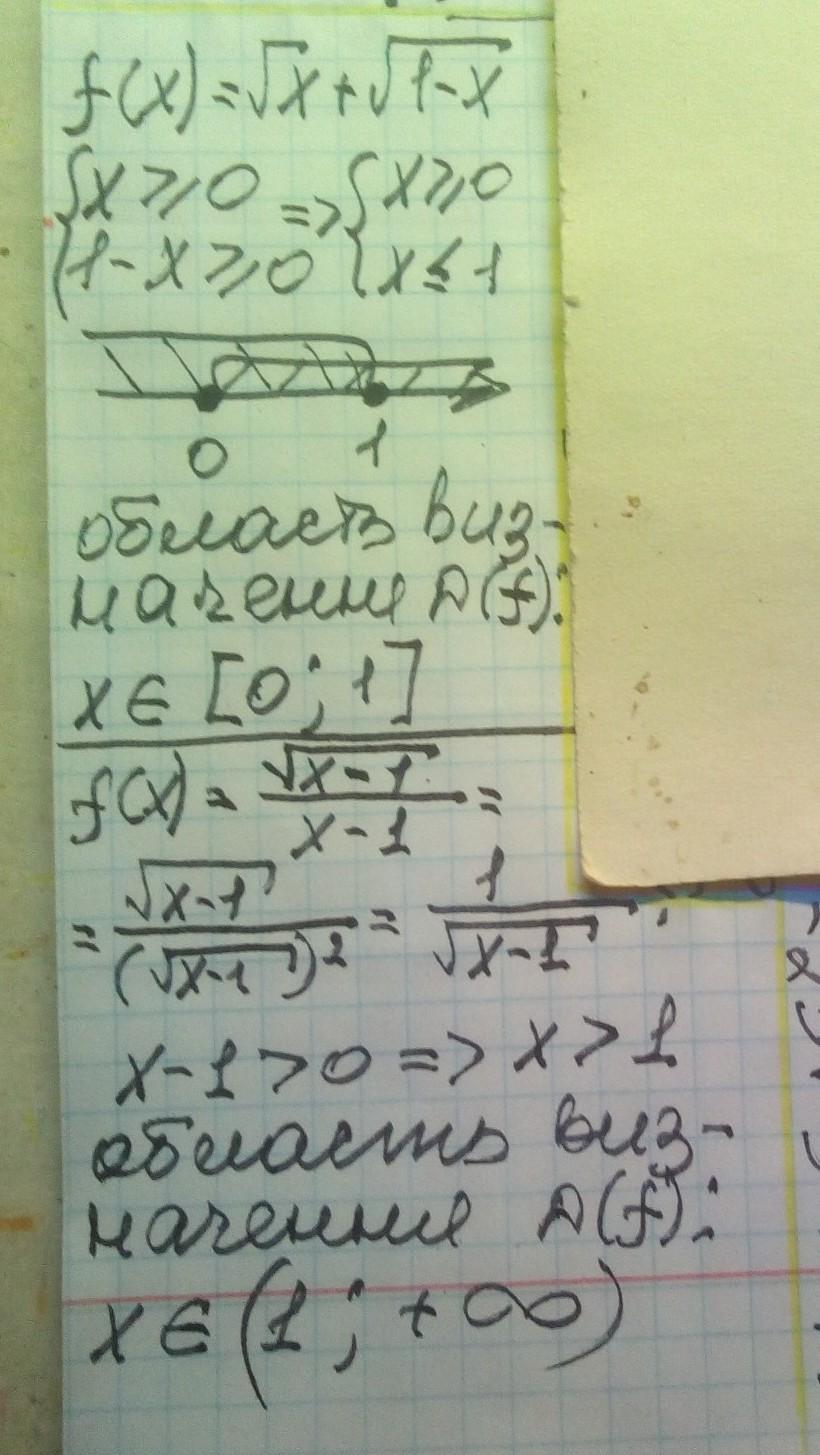 f(x)=√x+√(1-x)
{x⩾0 => {x⩾0
{1-x⩾0 {x≤1
0 1
область виз-
начення D(f):
x∈[0;1]
f(x)=√(x-1)/(x-1)=
=√(x-1)/(√(x-1))²=1/√(x-1);
x-1>0=>x>1
область виз-
начення D(f):
x∈(1;+∞)